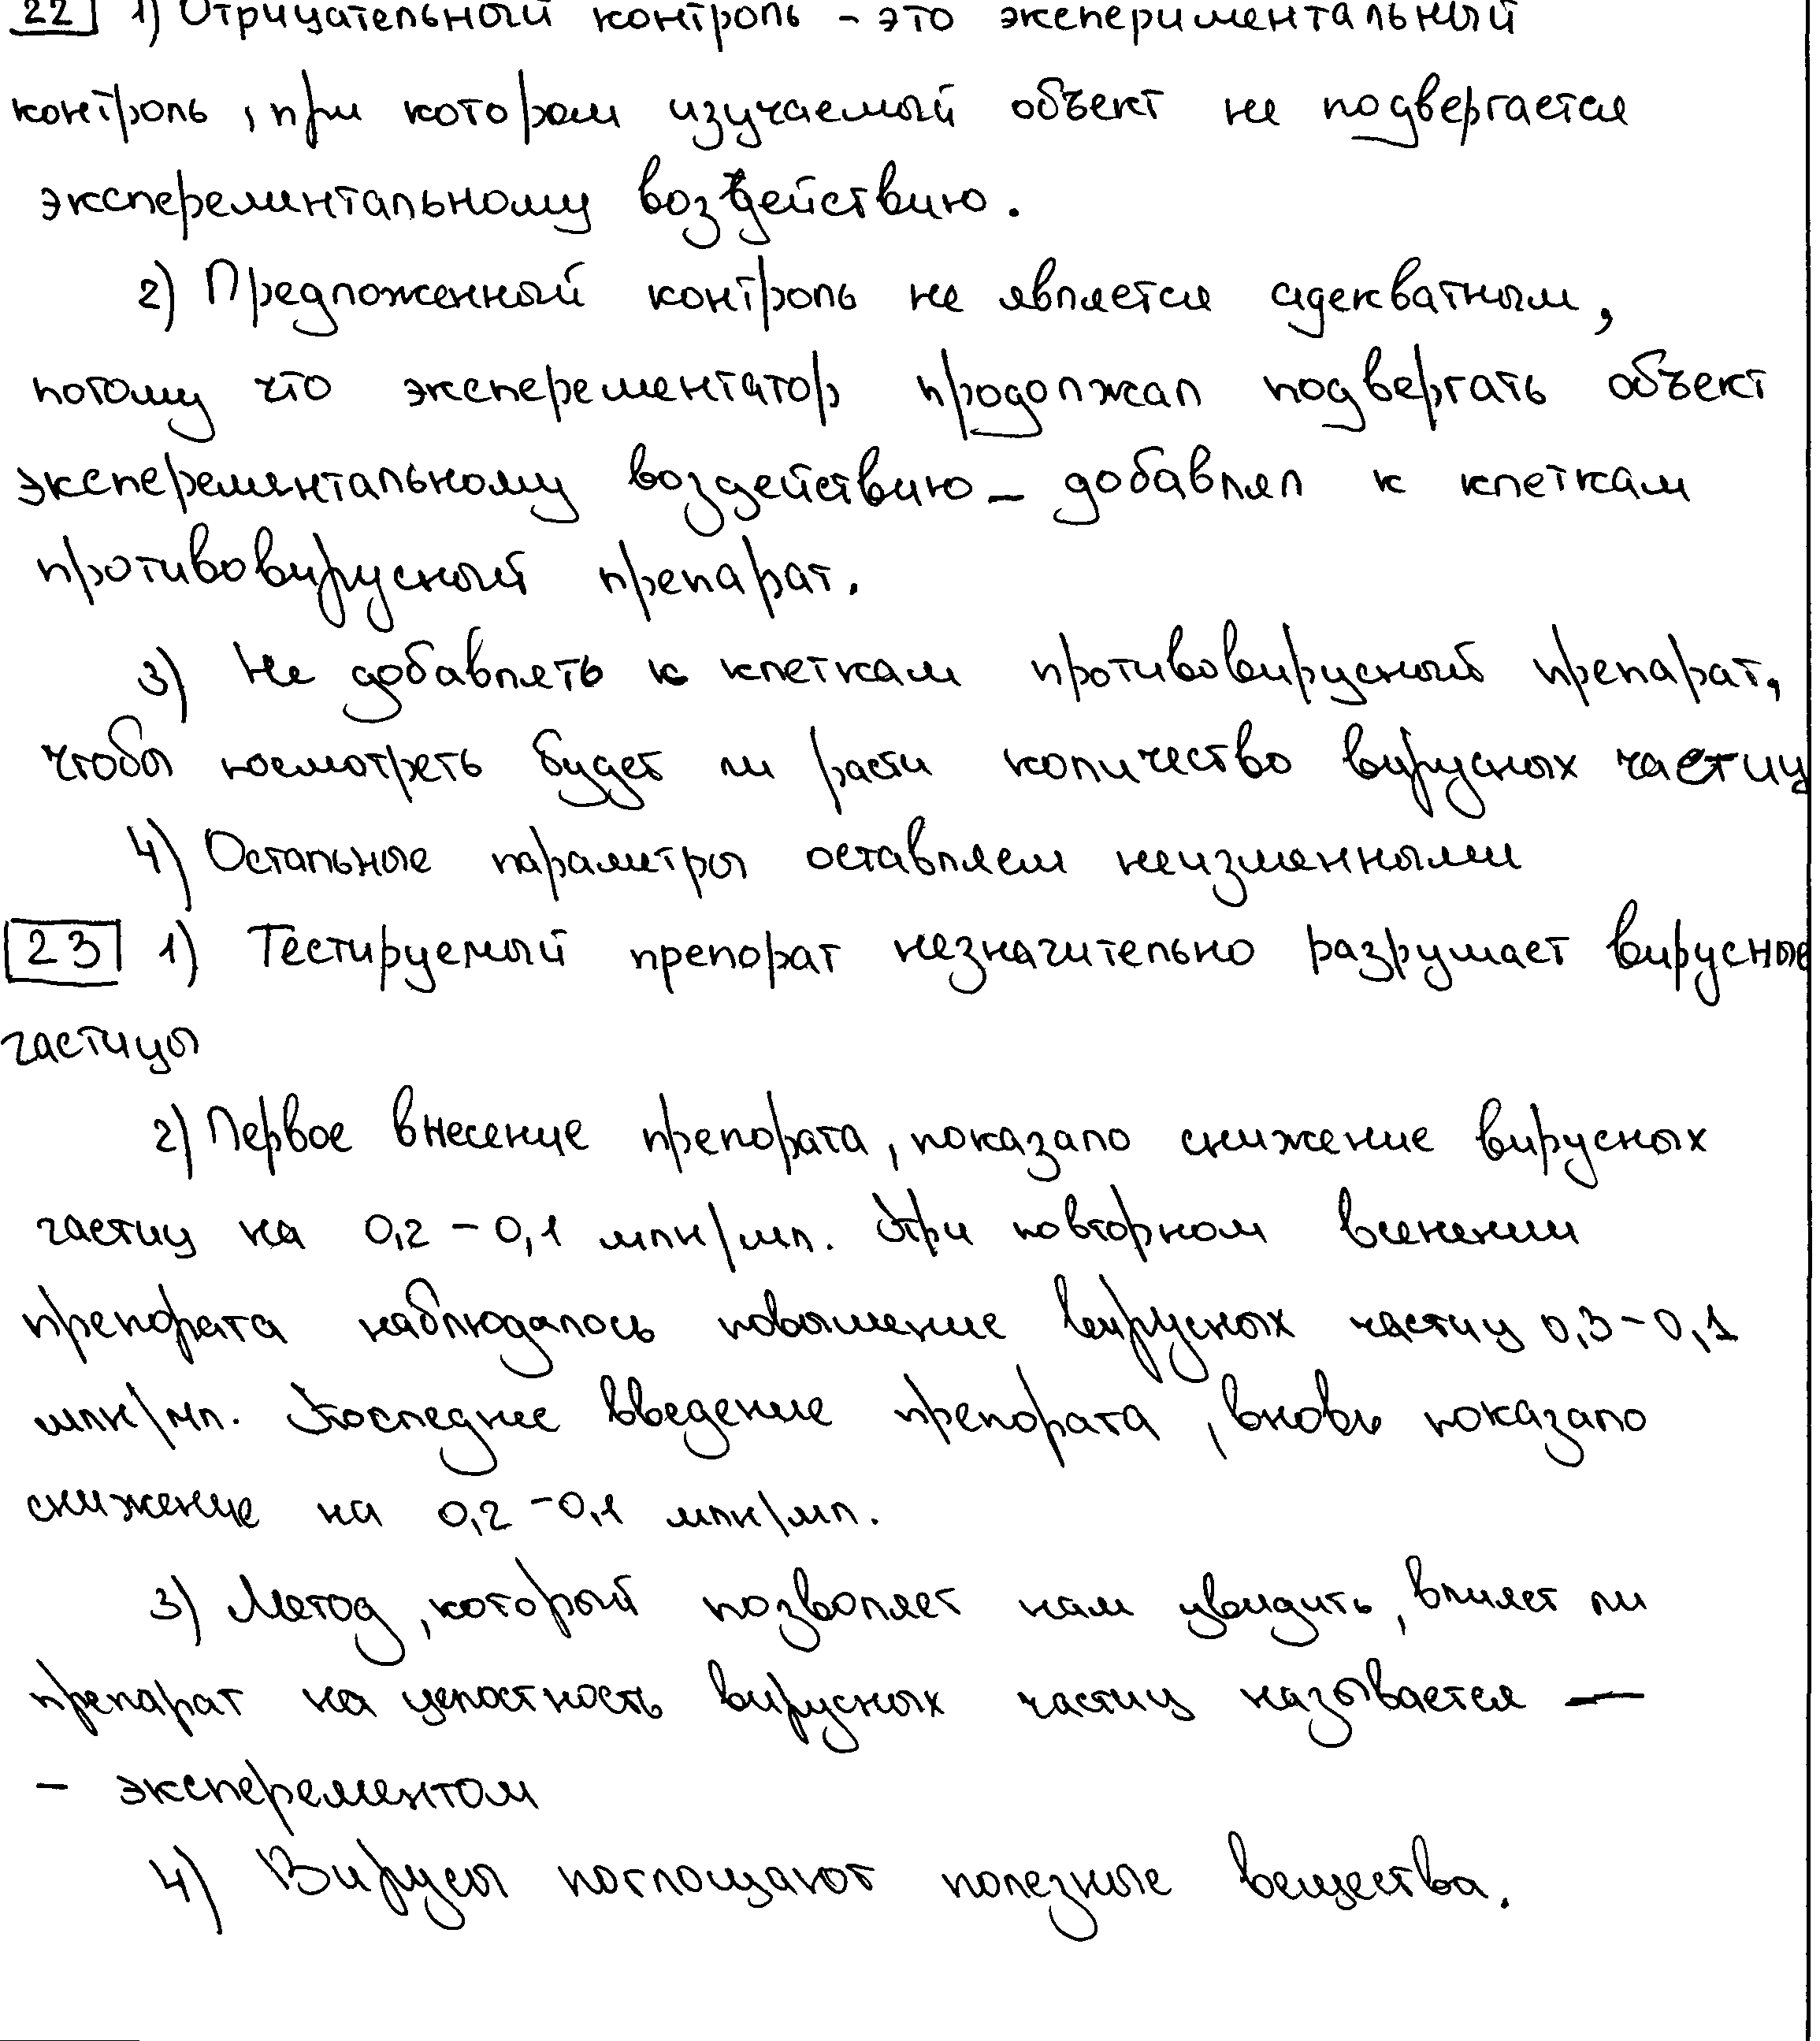 22 1) Отрицательный контроль - это экспериментальный
контроль, при котором изучаемый объект не подвергается
эксперементальному воздействию.
2) Предложенный контроль не является адекватным,
потому что эксперементатор продолжал подвергать объект
эксперементальному воздействию - добавлял к клеткам
противовирусный препарат.
3) Не добавлять к клеткам противовирусный препарат,
чтобы посмотреть будет ли расти количество вирусных частиц
4) Остальные параметры оставляем неизменными
23 1) Тестируемый препорат незначительно разрушает вирусные
частицы
2) Первое внесение препората, показало снижение вирусных
частиц на 0,2 - 0,1 млн/мл. При повторном вненении
препората наблюдалось повышение вирусных частиц 0,3 - 0,1
млн/мл. Последнее введение препората, вновь показало
снижение на 0,2 - 0,1 млн/мл.
3) Метод, который позволяет нам увидить, влияет ли
препарат на целостность вирусных частиц называется —
- эксперементом
4) Вирусы поглощают полезные вещества.